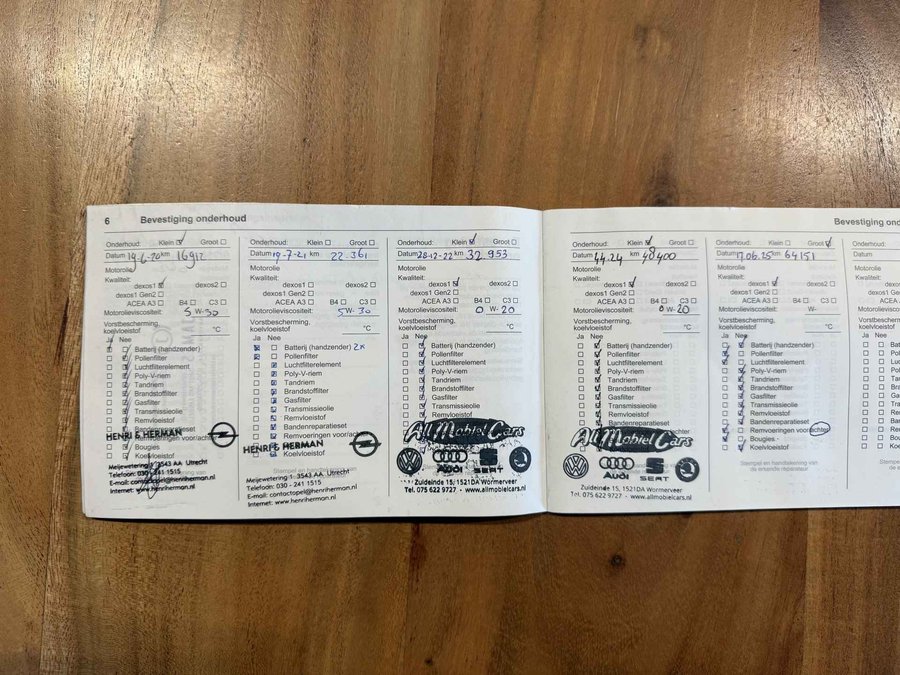 6 Bevestiging onderhoud
Onderhoud: Klein Groot
Datum 19-6-20 km 16912
Motorolie
Kwaliteit:
dexos1 dexos2
dexos1 Gen2
ACEA A3 B4 C3
Motorolieviscositeit: 5 W-30
Vorstbescherming,
koelvloeistof °C
Ja Nee
Batterij (handzender)
Pollenfilter
Luchtfilterelement
Poly-V-riem
Tandriem
Brandstoffilter
Gasfilter
Transmissieolie
Remvloeistof
Bandenreparatieset
Bougies
HENRI & HERMAN
Meijewetering 1 3543 AA Utrecht
Telefoon: 030 - 241 1515
E-mail: contactopel@henriherman.nl
Internet: www.henriherman.nl
Onderhoud: Klein Groot
Datum 19-7-21 km 22.361
Motorolie
Kwaliteit:
dexos1 dexos2
dexos1 Gen2
ACEA A3 B4 C3
Motorolieviscositeit: 5W-30
Vorstbescherming,
koelvloeistof °C
Ja Nee
Batterij (handzender) 2x
Pollenfilter
Luchtfilterelement
Poly-V-riem
Tandriem
Brandstoffilter
Gasfilter
Transmissieolie
Remvloeistof
Bandenreparatieset
Koelvloeistof
HENRI & HERMAN
Meijewetering 1 3543 AA Utrecht
Telefoon: 030 - 241 1515
E-mail: contactopel@henriherman.nl
Internet: www.henriherman.nl
Onderhoud: Klein Groot
Datum 28-12-22 km 32.953
Motorolie
Kwaliteit:
dexos1 dexos2
dexos1 Gen2
ACEA A3 B4 C3
Motorolieviscositeit: 0 W-20
Vorstbescherming,
koelvloeistof °C
Ja Nee
Batterij (handzender)
Pollenfilter
Luchtfilterelement
Poly-V-riem
Tandriem
Brandstoffilter
Gasfilter
Transmissieolie
Remvloeistof
Bandenreparatieset
All Mobiel Cars
Audi SEAT
Zuideinde 15, 1521DA Wormerveer
Tel. 075 622 9727 - www.allmobielcars.nl
Bevestiging on
Onderhoud: Klein Groot
Datum 4.4.24 km 48400
Motorolie
Kwaliteit:
dexos1 dexos2
dexos1 Gen2
ACEA A3 B4 C3
Motorolieviscositeit: 0 W-20
Vorstbescherming,
koelvloeistof °C
Ja Nee
Batterij (handzender)
Pollenfilter
Luchtfilterelement
Poly-V-riem
Tandriem
Brandstoffilter
Gasfilter
Transmissieolie
Remvloeistof
Bandenreparatieset
All Mobiel Cars
Audi SEAT
Zuideinde 15, 1521DA Wormerveer
Tel. 075 622 9727 - www.allmobielcars.nl
Onderhoud: Klein Groot
Datum 17.06.25 km 64151
Motorolie
Kwaliteit:
dexos1 dexos2
dexos1 Gen2
ACEA A3 B4 C3
Motorolieviscositeit: W-
Vorstbescherming,
koelvloeistof °C
Ja Nee
Batterij (handzender)
Pollenfilter
Luchtfilterelement
Poly-V-riem
Tandriem
Brandstoffilter
Gasfilter
Transmissieolie
Remvloeistof
Bandenreparatieset
Remvoeringen voor/achter
Bougies
Koelvloeistof
Stempel en handtekening van
de erkende reparateur
Onderhoud:
Datum
Motorolie
Kwaliteit:
Motorolieviscositeit:
Vorstbescherming,
koelvloeistof
Ja Nee